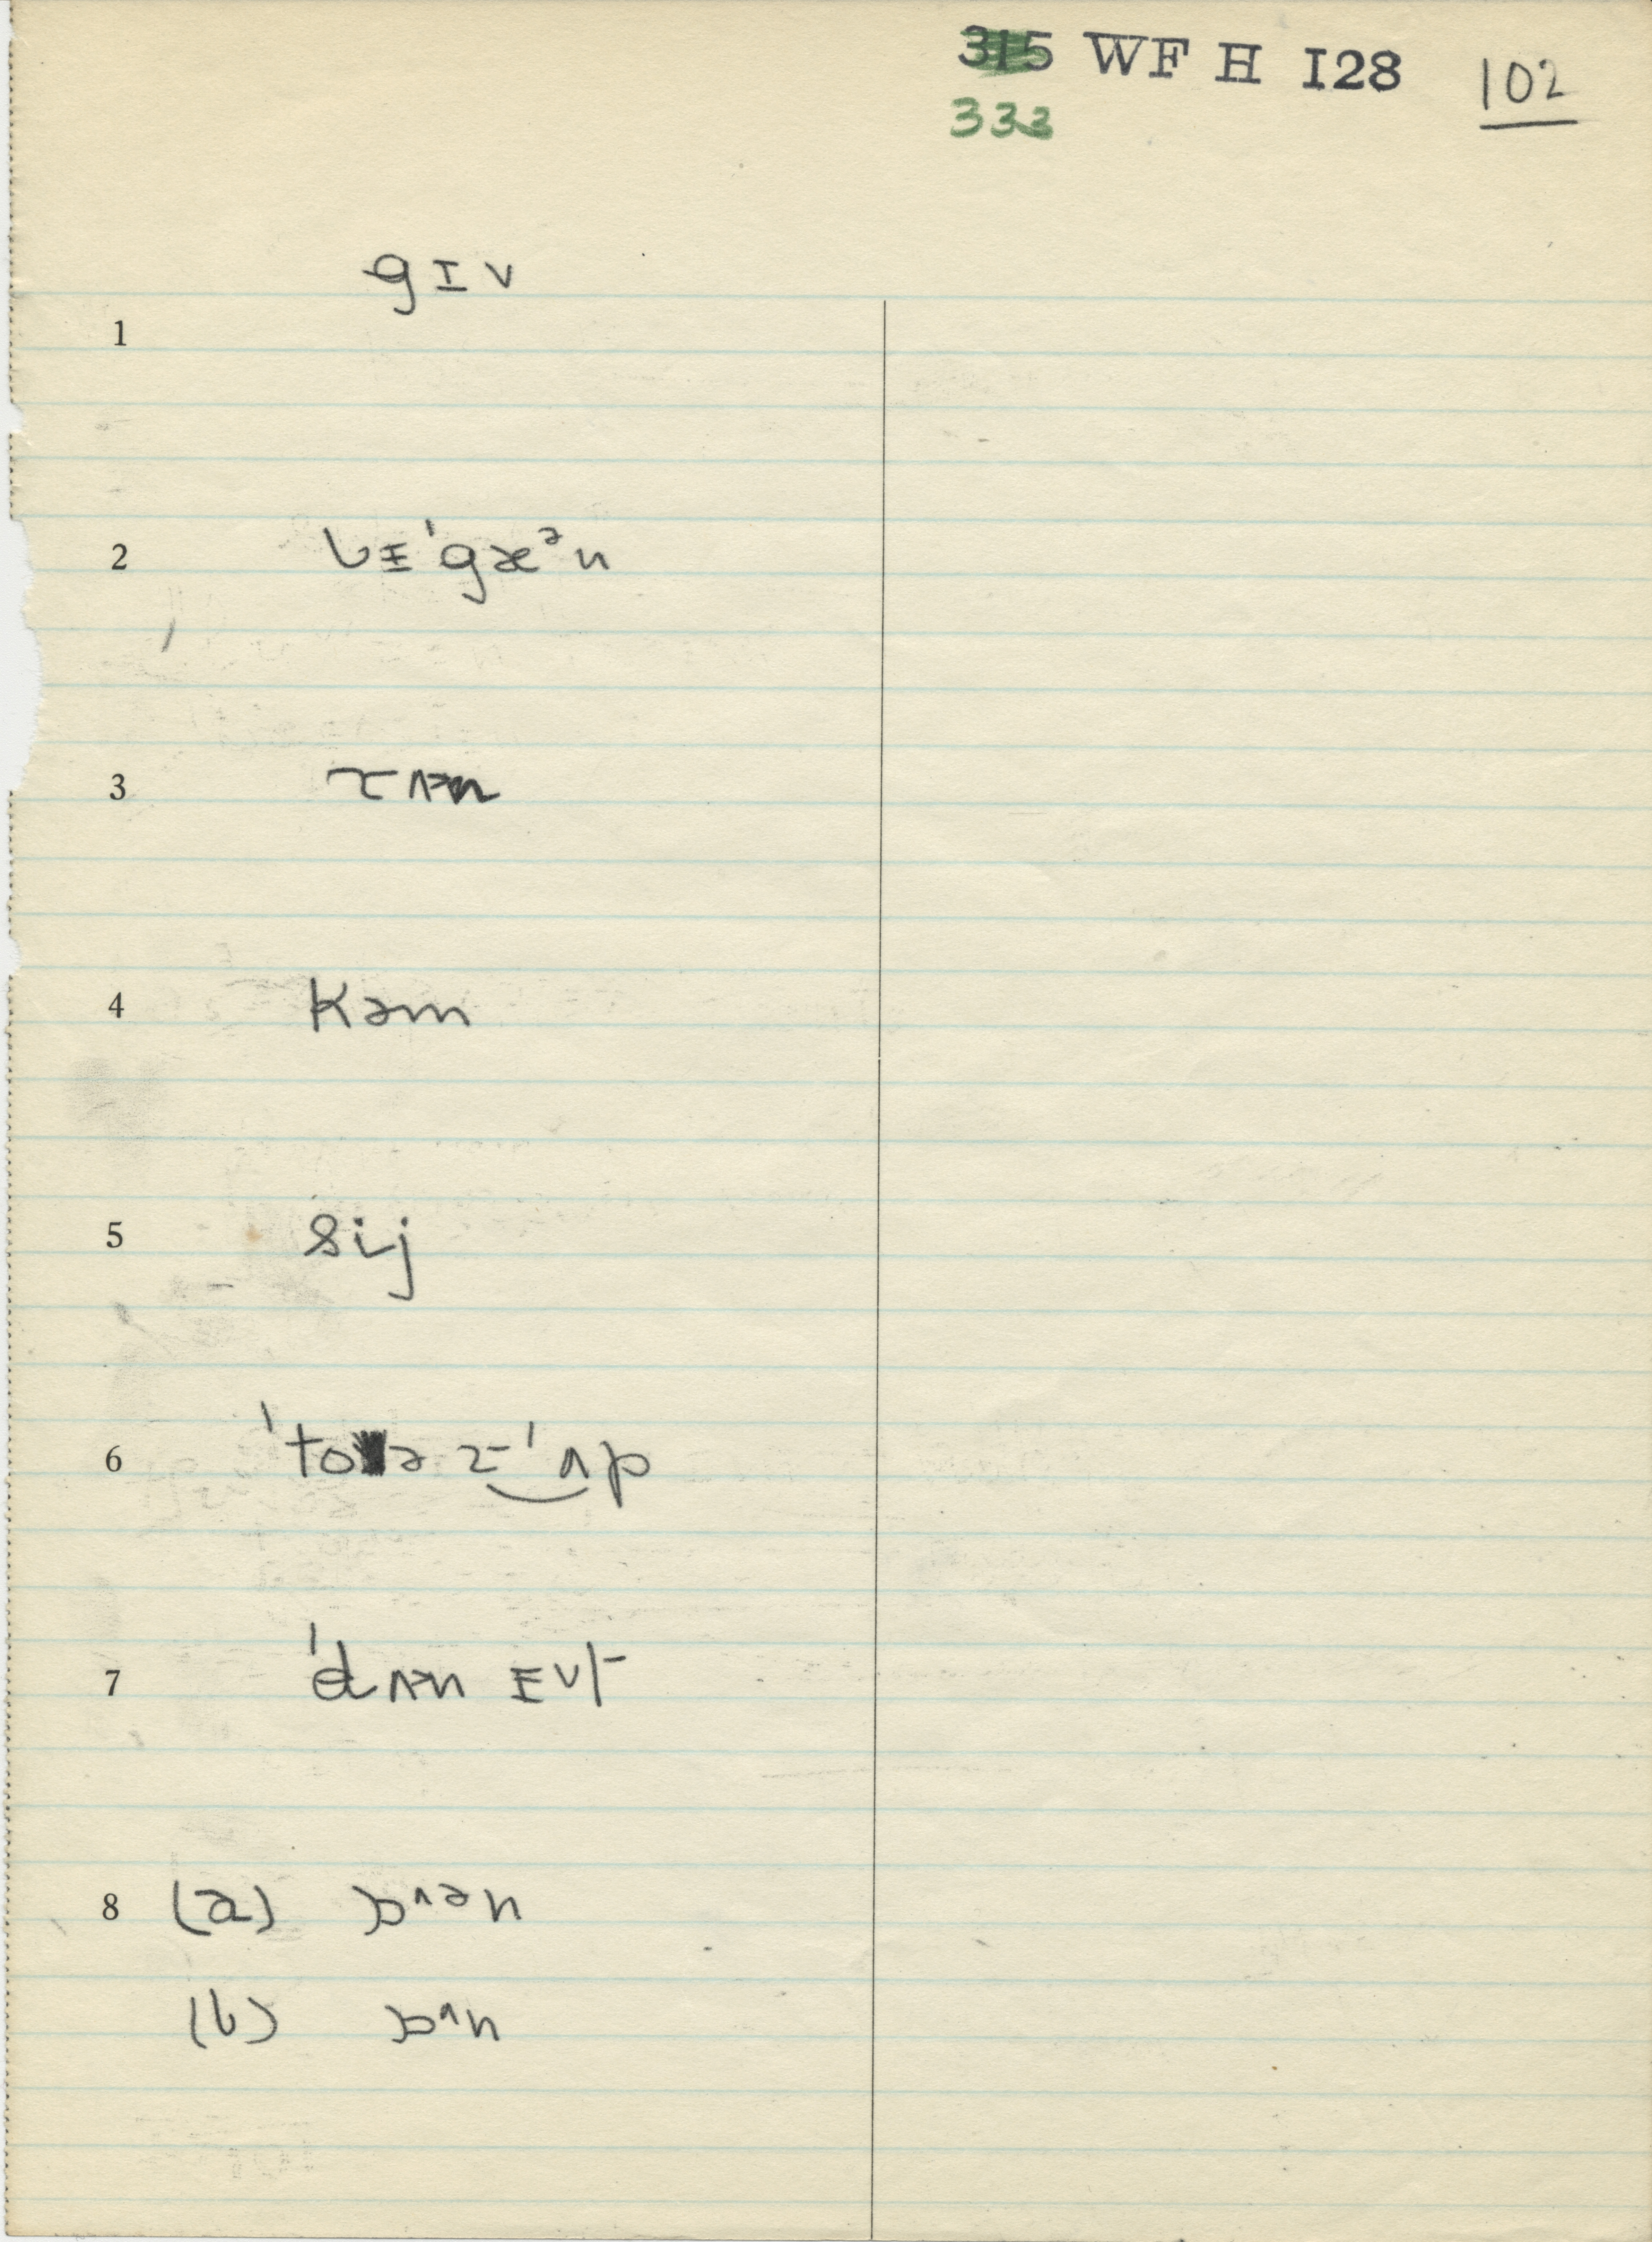 315 WF H I28 102
333
gɪv
1
2 bɪ'gæᵊn
3 rʌn
4 kəm
5 sij
6 'toə z 'ʌp
7 'dʌn ɪvt
8 (a) ɒʌən
(b) ɒʌn